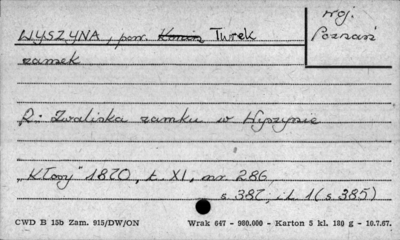 woj.
Poznań
WYSZYNA, pow. Konin Turek
zamek
R: Zwaliska zamku w Wyszynie
"Kłosy" 1870, t. XI, nr. 286,
s. 387, il. 1 (s 385)
CWD B 15b Zam. 915/DW/ON Wrak 647 - 980.000 - Karton 5 kl. 180 g - 10.7.67.